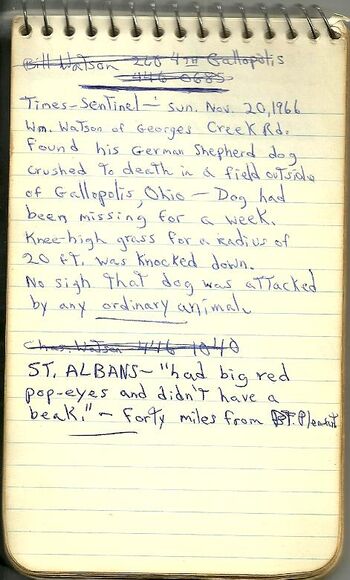 Bill Watson 268 4TH Gallopolis
446-0685
Times-Sentinel- Sun. Nov. 20, 1966
Wm. Watson of Georges Creek Rd.
Found his German Shepherd dog
crushed to death in a field outside
of Gallopolis, Ohio - Dog had
been missing for a week.
Knee-high grass for a radius of
20 ft. was knocked down.
No sigh that dog was attacked
by any ordinary animal.
Chas. Watson 446-1040
ST. ALBANS- "had big red
pop-eyes and didn't have a
beak." - Forty miles from PT. Pleasant